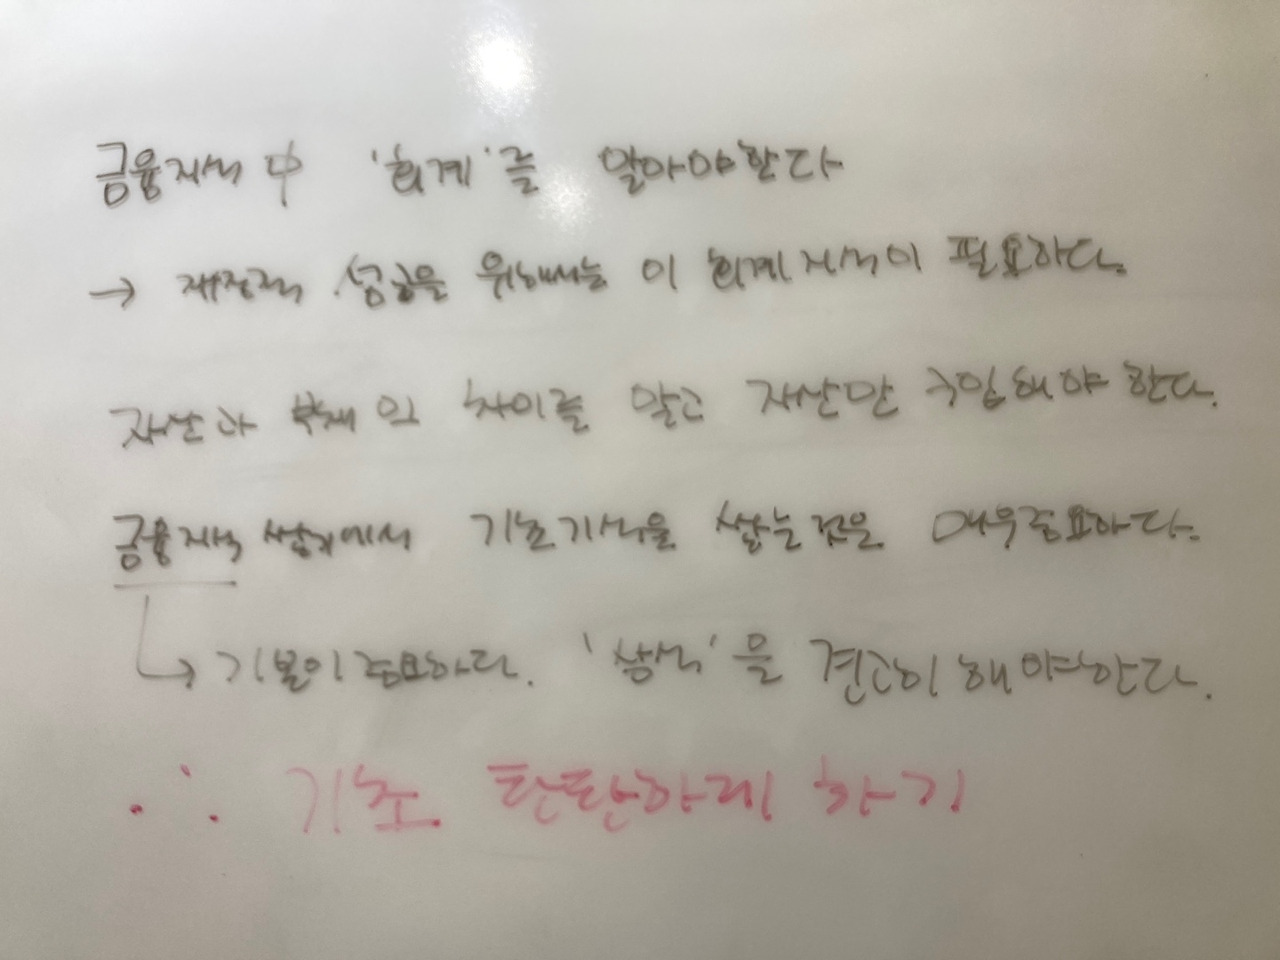 금융지식 中 '회계'를 알아야한다
→ 재정적 성공을 위해서는 이 회계지식이 필요하다.
자산과 부채의 차이를 알고 자산만 구입해야 한다.
금융지식 에서 기초지식을 쌓는것은 매우중요하다.
↳ 기본이 중요하다. '상식'을 견고히 해야한다.
∴ 기초 탄탄하게 하기